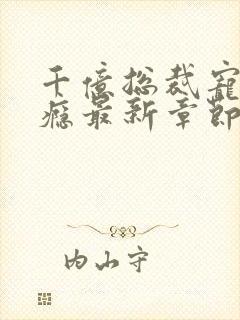 千億总裁寵
癮最新章節
内山守